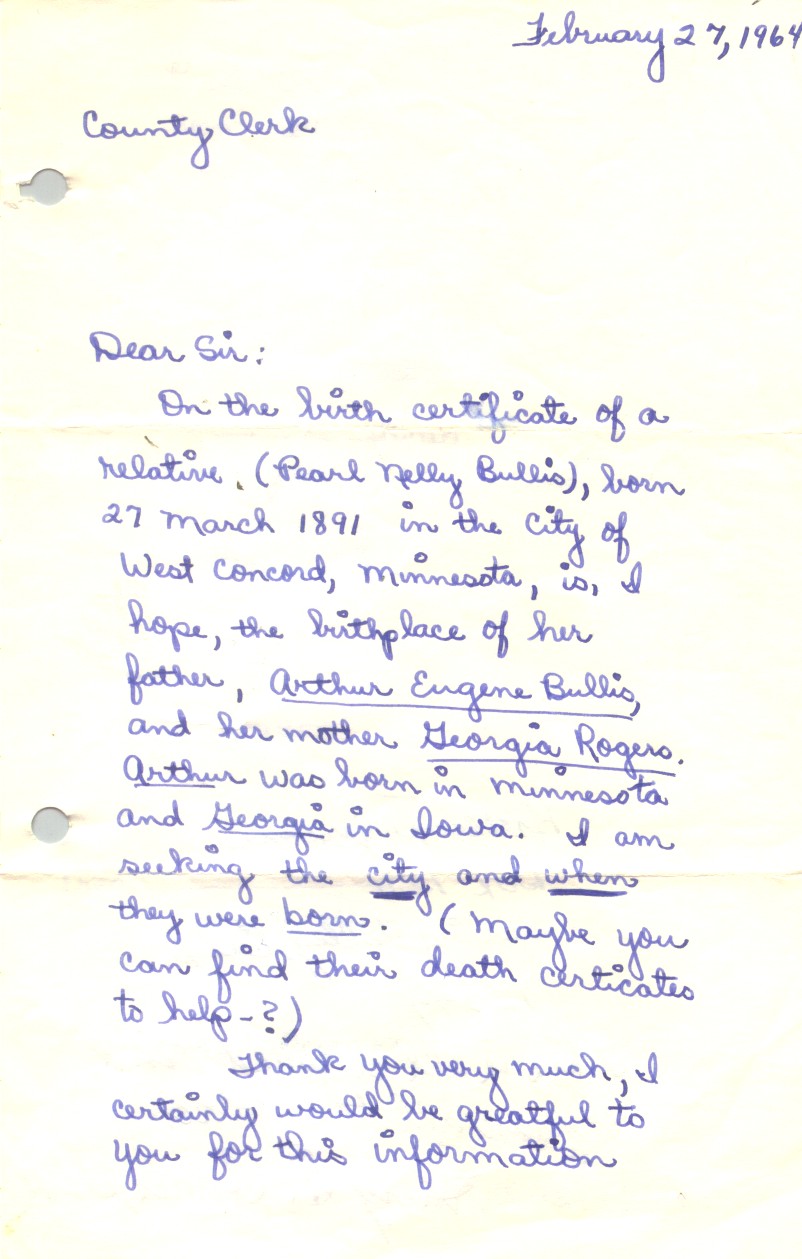 February 27, 1964
County Clerk
Dear Sir:
On the birth certificate of a
relative, (Pearl Nelly Bullis), born
27 March 1891 in the city of
West Concord, Minnesota, is, I
hope, the birthplace of her
father, Arthur Eugene Bullis,
and her mother Georgia Rogers.
Arthur was born in Minnesota
and Georgia in Iowa. I am
seeking the city and when
they were born. (Maybe you
can find their death certicates
to help-?)
Thank you very much, I
certainly would be greatful to
you for this information